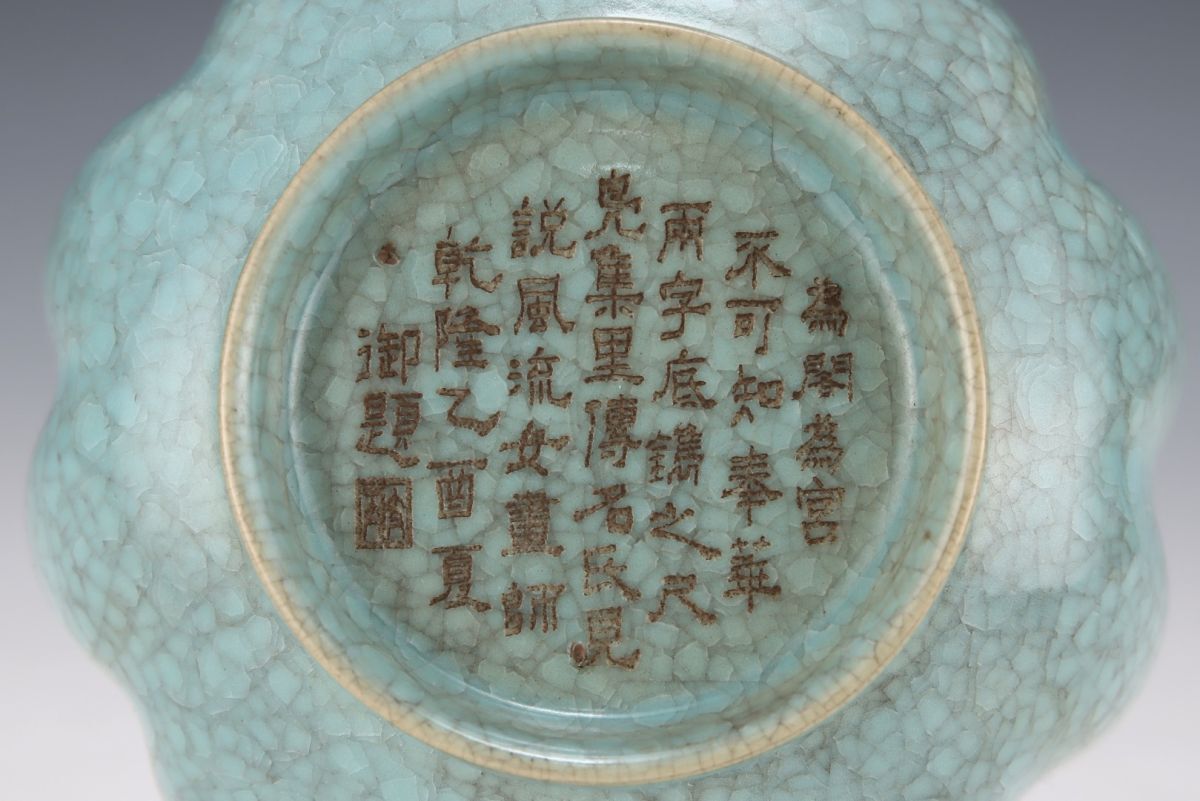 為閣為宮
不可知奉華
兩字底鐫之尺
集里傳名氏見
說風流女畫師
乾隆乙酉夏
御題